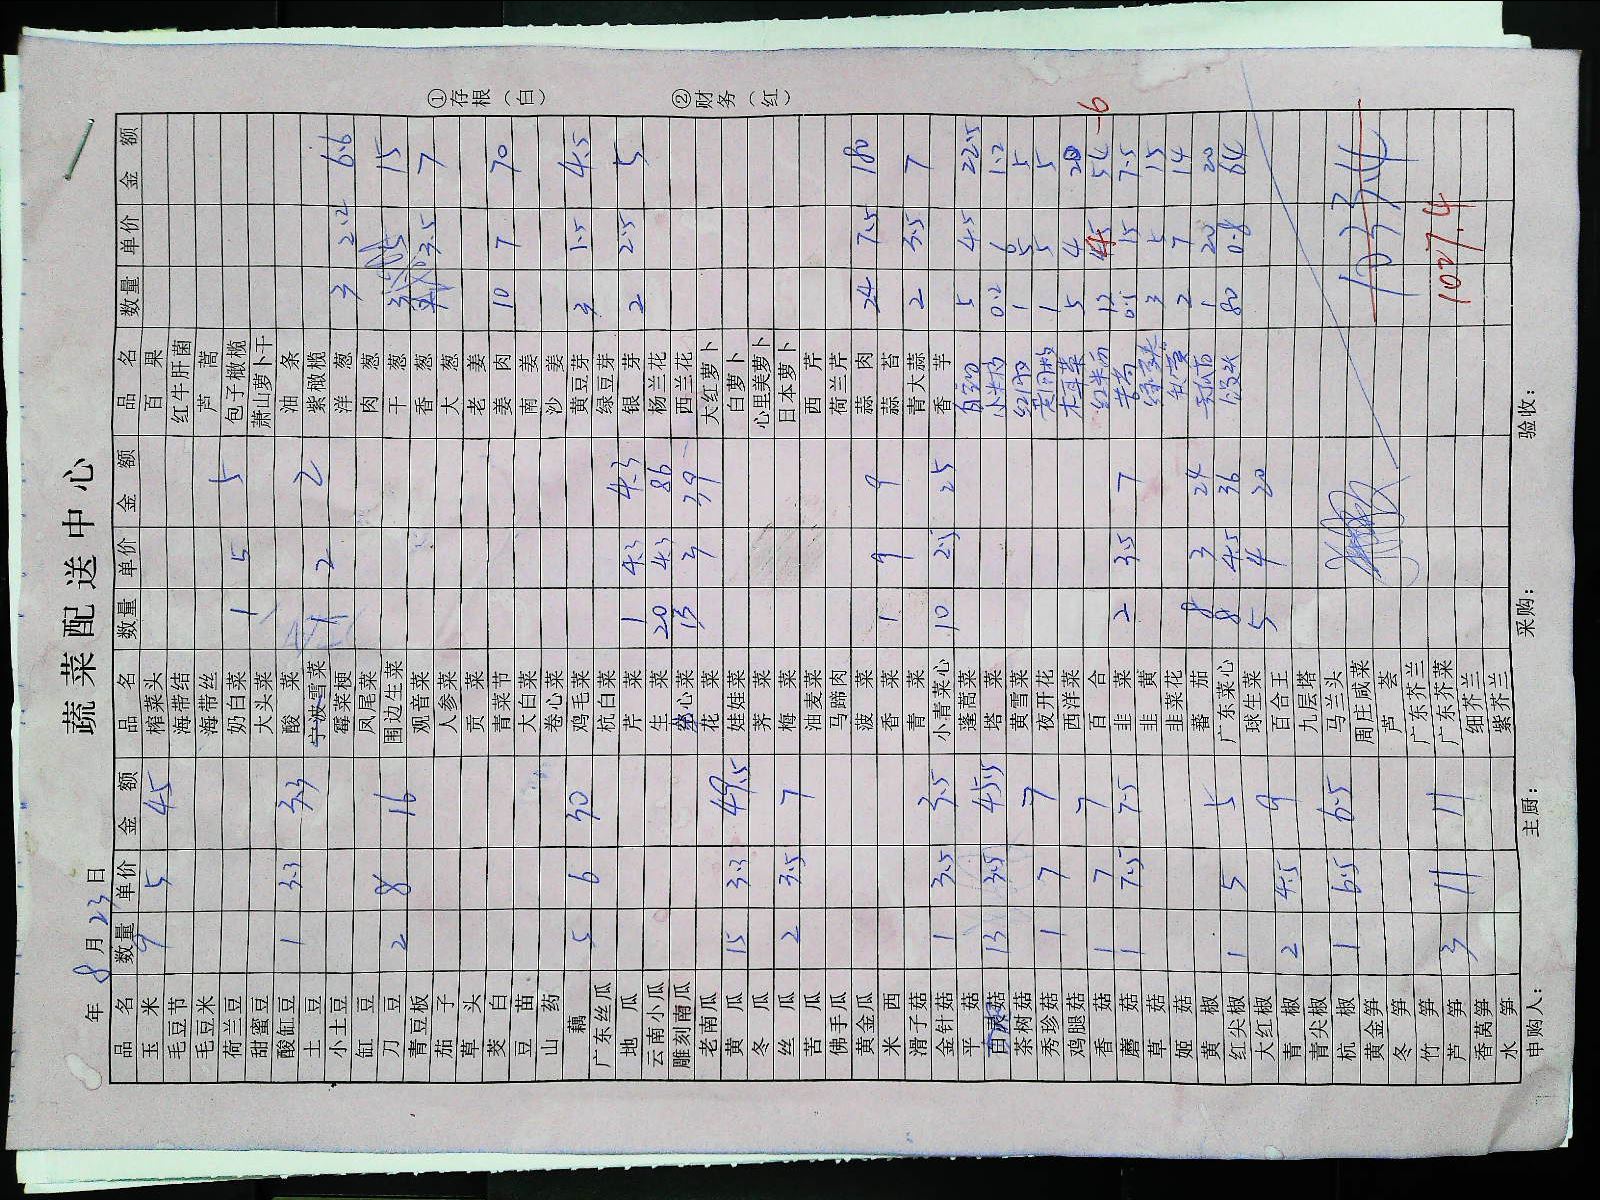 蔬菜配送中心
年 8月23日
品名 数量 单价 金额 品名 数量 单价 金额 品名 数量 单价 金额
玉米 9 5 45 榨菜头 百果
毛豆节 海带结 红牛肝菌
毛豆米 海带丝 芦蒿
荷兰豆 奶白菜 1 5 5 包子橄榄
甜蜜豆 大头菜 萧山萝卜干
酸缸豆 1 3.3 3.3 酸菜 油条
土豆 宁波雪菜 1 2 2 紫橄榄
小土豆 霉菜梗 洋葱 3 2.2 6.6
缸豆 凤尾菜 肉葱
刀豆 2 8 16 围边生菜 干葱 3 5 15
青豆板 观音菜 香葱 3.5 7
茄子 人参菜 大葱
草头 贡菜 老姜
茭白 青菜节 姜肉 10 7 70
豆苗 大白菜 南姜
山药 卷心菜 沙姜
藕 5 6 30 鸡毛菜 黄豆芽 3 1.5 4.5
广东丝瓜 杭白菜 绿豆芽
地瓜 芹菜 1 4.3 4.3 银芽 2 2.5 5
云南小瓜 生菜 20 4.3 86 杨兰花
雕刻南瓜 心菜 13 3 39 西兰花
老南瓜 花菜 大红萝卜
黄瓜 15 3.3 49.5 娃娃菜 白萝卜
冬瓜 荠菜 心里美萝卜
丝瓜 2 3.5 7 梅菜 日本萝卜
苦瓜 油麦菜 西芹
佛手瓜 马蹄肉 荷兰芹
黄金瓜 菠菜 蒜肉 24 7.5 180
米西 香菜 1 9 9 蒜苔
滑子菇 青菜 青大蒜 2 3.5 7
金针菇 1 3.5 3.5 小青菜心 10 2.5 25 香芋
平菇 蓬蒿菜 5 4.5 22.5
菇 13 3.5 45.5 塔菜 小米 0.2 6 1.2
茶树菇 黄雪菜 1 5 5
秀珍菇 1 7 7 夜开花 1 5 5
鸡腿菇 西洋菜 木耳菜 5 4 20
香菇 1 7 7 百合 12 4.5 54 -6
蘑菇 1 7.5 7.5 韭菜 2 3.5 7 0.5 15 7.5
草菇 韭黄 3 5 15
姬菇 韭菜花 秋葵 2 7 14
黄椒 蕃茄 8 3 24 1 20 20
红尖椒 1 5 5 广东菜心 8 4.5 36 80 0.8 64
大红椒 球生菜 5 4 20
青椒 2 4.5 9 百合王
青尖椒 九层塔
杭椒 1 6.5 6.5 马兰头
黄金笋 周庄咸菜 1033.4
冬笋 芦荟
竹笋 广东芥兰
芦笋 3 11 11 广东芥菜 1027.4
香莴笋 细芥兰
水笋 紫芥兰
申购人： 主厨： 采购： 验收：
①存根（白）
②财务（红）